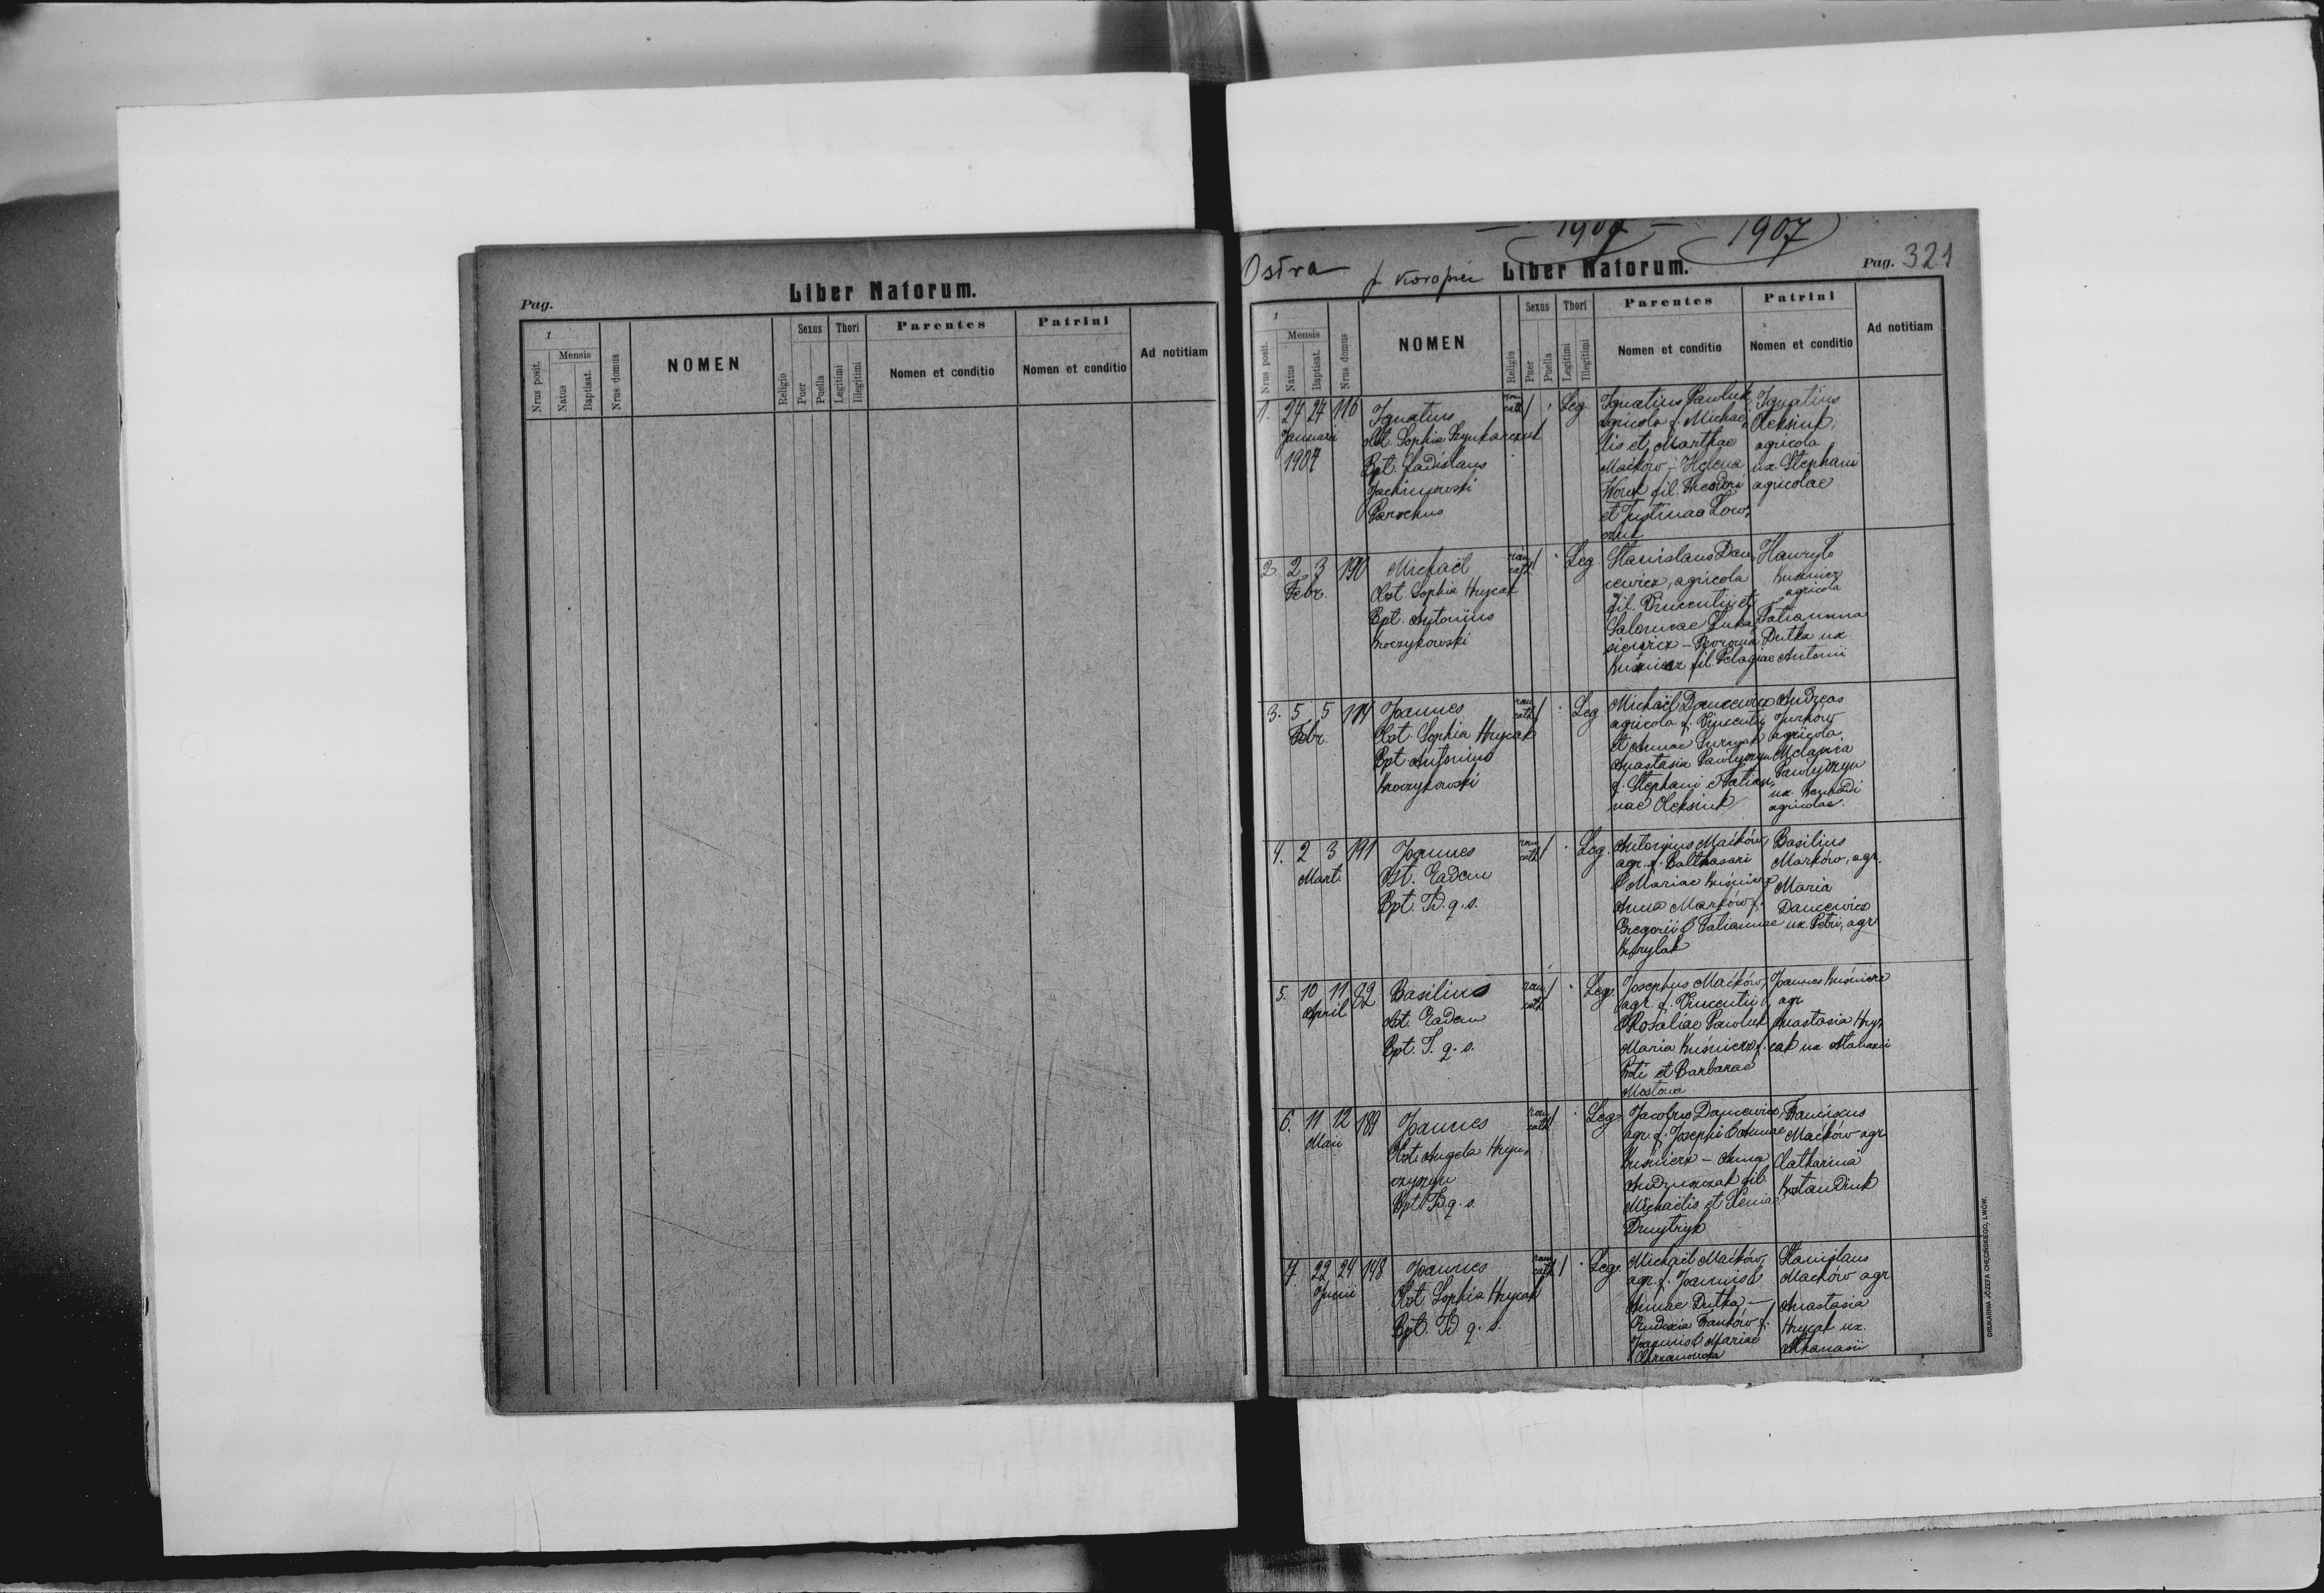 Pag.
Liber Natorum.
1
Nrus posit.
Mensis
Natus
Baptisat.
Nrus domus
NOMEN
Religio
Sexus
Puer
Puella
Thori
Legitimi
Illegitimi
Parentes
Nomen et conditio
Patrini
Nomen et conditio
Ad notitiam
— 1907 — 1907
Ostra
Liber Natorum.
Pag. 321
1
Nrus posit.
Mensis
Natus
Baptisat.
Nrus domus
NOMEN
Religio
Sexus
Puer
Puella
Thori
Legitimi
Illegitimi
Parentes
Nomen et conditio
Patrini
Nomen et conditio
Ad notitiam
1. 24 24 116
Januarii
1907
Ignatius
Obst. Sophia
Bpt. Ladislaus
Parochus
rom
cath
Leg
Ignatius Pawluk
agricola f. Michae,
lis et Marthae
Maćków – Helena
fil. Theodori
et Justinae
Ignatius
Oleksiuk,
agricola
ux. Stephani
agricolae
2. 2 3 190
Febr.
Michaël
Obst. Sophia Hrycak
Bpt. Antonius
Kroczykowski
rom
cath
Leg
Stanislaus Dan,
cewicz, agricola
fil. Vincentii et
Salomeae Luka,
siewicz –
Kuśnierz fil. Pelagiae
Hawryło
Kuśnierz
agricola
Tatianna
Dutka ux
Antonii
3. 5 5 174
Febr.
Joannes
Obst. Sophia Hrycak
Bpt Antonius
Kroczykowski
rom
cath
Leg
Michaël Dancewicz
agricola f. Vincentii
et Annae
Anastasia Pawłyszyn
f. Stephani Tatian,
nae Oleksiuk
Andreas
Jurków
agricola
Melania
Pawłyszyn
ux.
agricolae.
4. 2 3 191
Mart.
Joannes
Obst. Eadem
Bpt. Id. q. s.
rom
cath
Leg.
Antonius Maćków,
agr. f. Balthasari
& Mariae Kuśnierz
Anna Marków f.
Gregorii & Tatiannae
Basilius
Marków, agr.
Maria
Dancewicz
ux. Petri, agr
5. 10 11 82
April.
Basilius
Obst. Eadem
Bpt. I. q. s.
rom
cath
Leg.
Josephus Maćków,
agr. f. Vincentii
& Rosaliae Pawluk
Maria Kuśnierz f.
et Barbarae
Mostowa
Joannes Kuśnierz
agr
Anastasia Hry,
cak ux. Atanazii
6. 11 12 189
Maii
Joannes
Obst. Angela Hryn,
czyszyn
Bpt. Id. q. s.
rom
cath
Leg.
Jacobus Dancewicz,
agr. f. Josephi & Annae
Kuśnierz – Anna
fil.
Michaëlis et Xeniae
Dmytryk
Franciscus
Maćków agr
Catharina
Kostandiuk
7. 22 24 148
Junii
Joannes
Obst. Sophia Hrycak
Bpt. Id. q. s.
rom
cath
Leg.
Michaël Maćków,
agr. f. Joannis &
Annae Dutka –
Eudoxia Franków f.
Joannis & Mariae
Stanislaus
Maćków agr
Anastasia
Hrycak ux.
Athanasii
DRUKARNIA JÓZEFA CHĘCIŃSKIEGO, LWÓW.